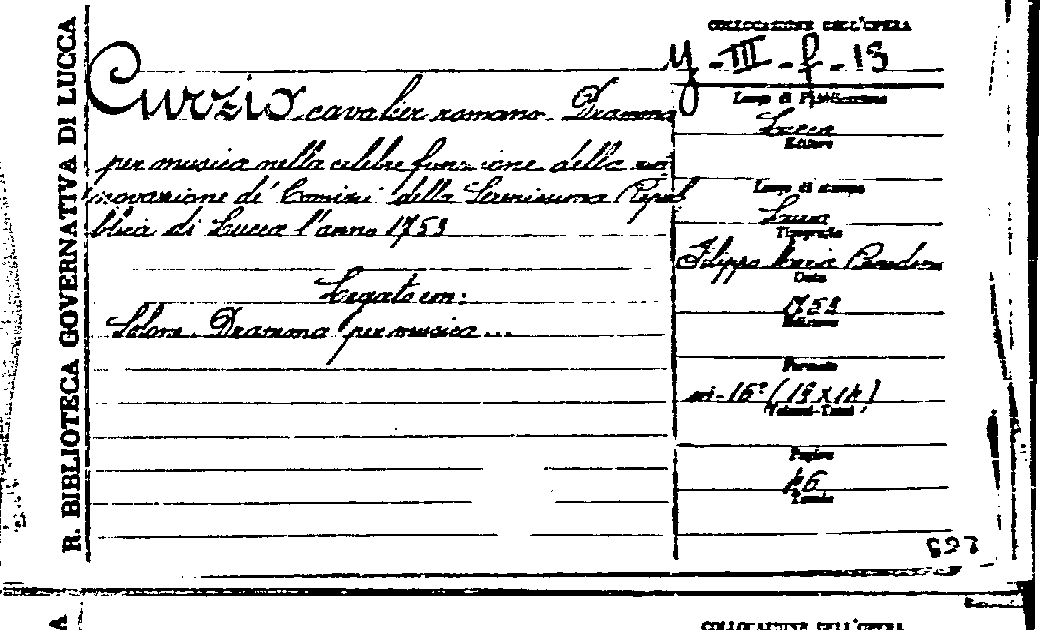 R. BIBLIOTECA GOVERNATIVA DI LUCCA
COLLOCAZIONE DELL'OPERA
Y - III - f - 13
Curzio cavalier romano. Dramma
per musica nella celebre funzione della rin
novazione di' Comizi della Serenissima Repub
blica di Lucca l'anno 1753
Legato con:
Solone. Dramma per musica ...
Luogo di Pubblicazione
Lucca
Editore
Luogo di stampa
Lucca
Tipografia
Filippo Maria Benedini
Data
1753
Edizione
Formato
in-16° (19x14)
Volumi-Tomi
Pagine
46
Tavole
COLLOCAZIONE DELL'OPERA